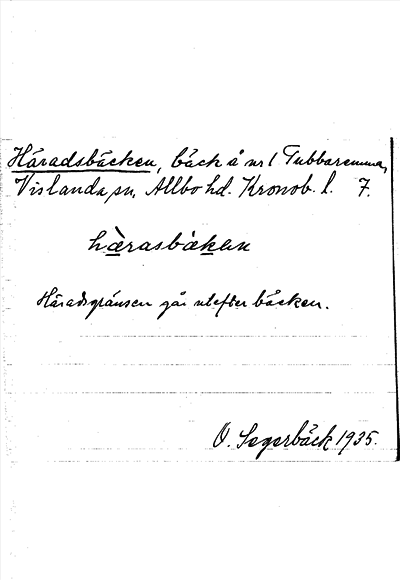 Häradsbäcken, bäck å nr 1 Tubbaremma,
Vislanda sn, Allbo hd. Kronob. l. 7.
hæ̀rasbàkɐn
Häradsgränsen går utefter bäcken.
O. Segerbäck 1935.